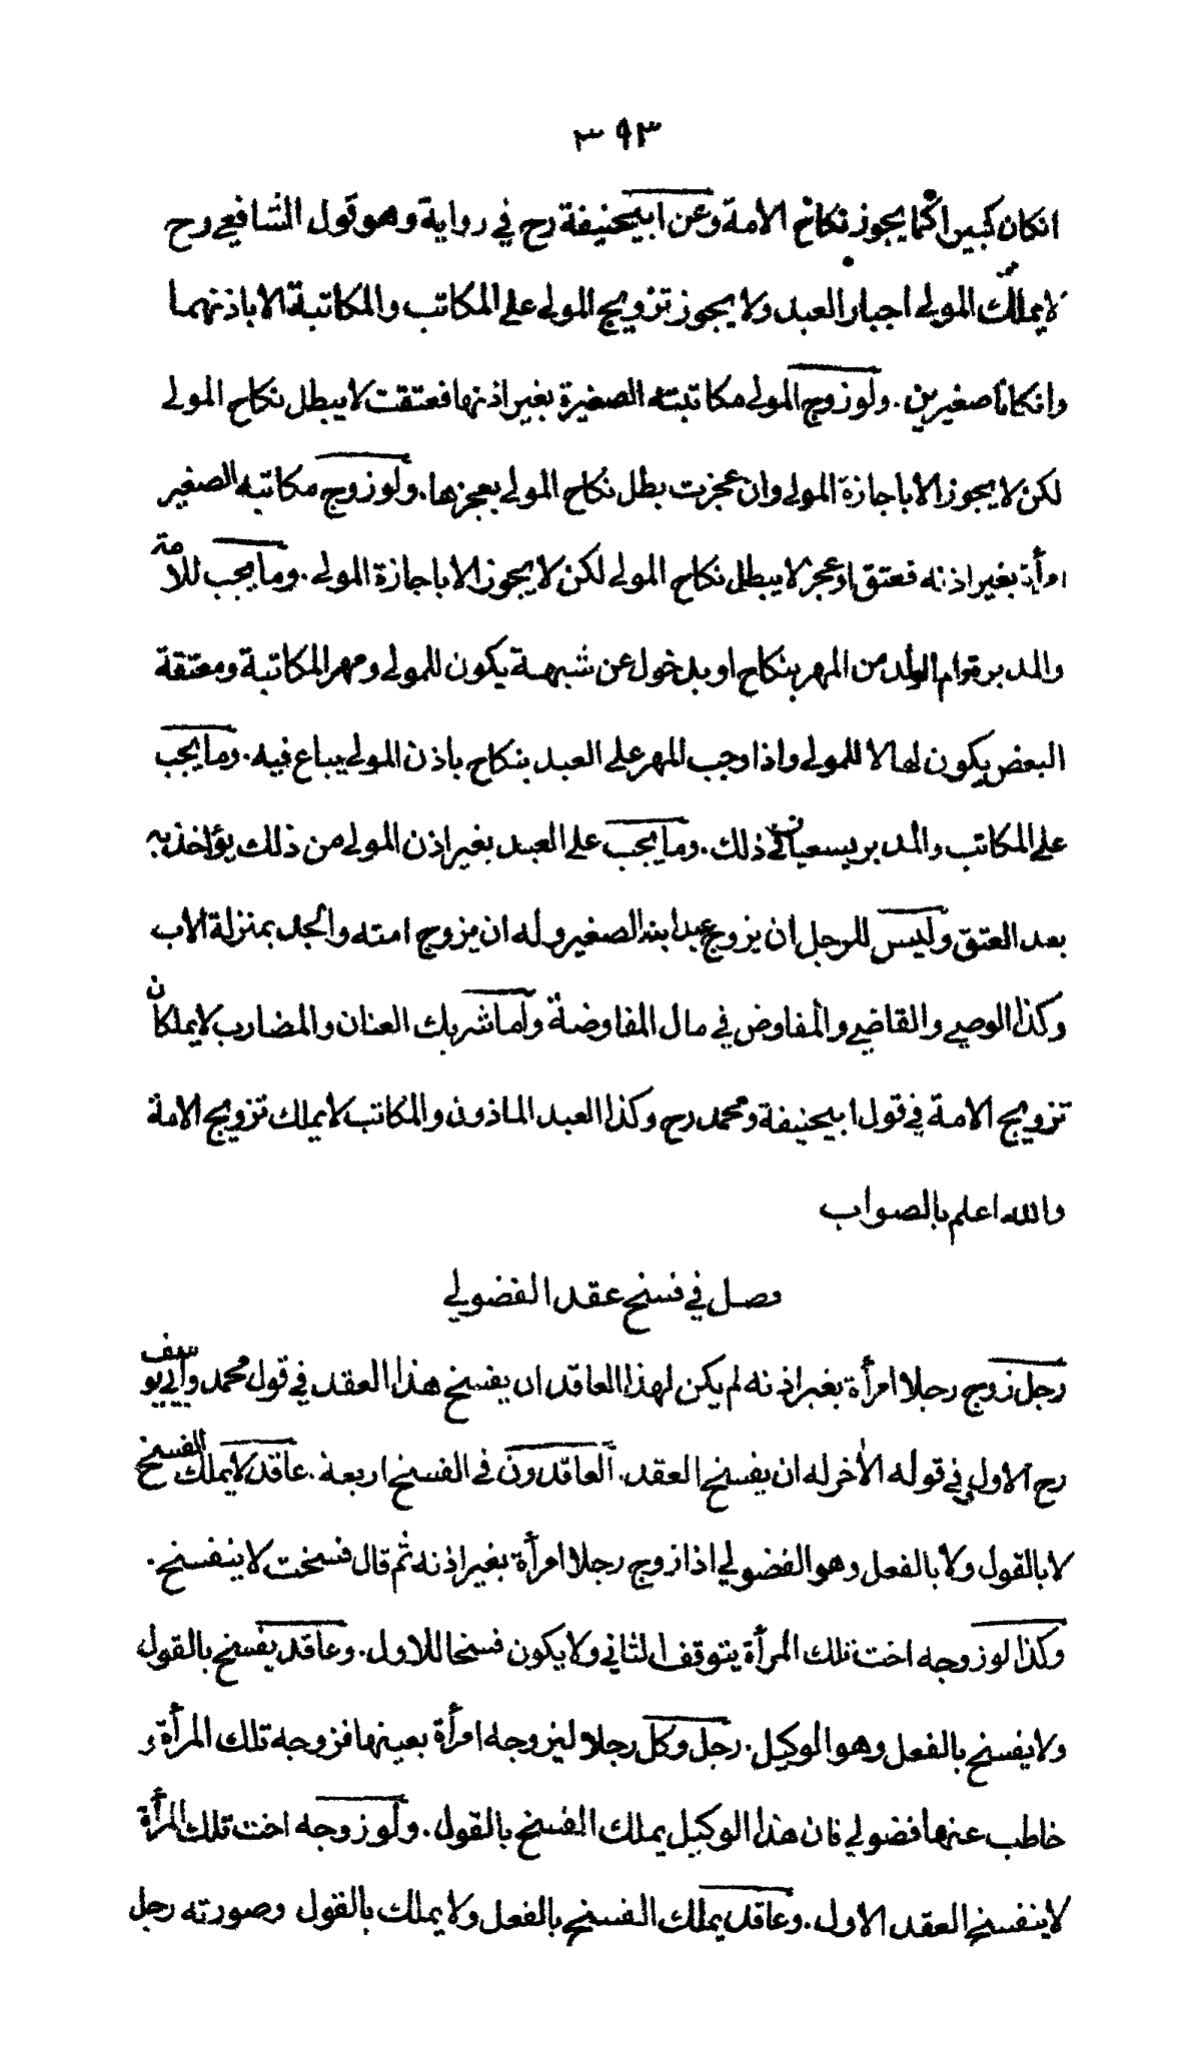 ٣٩٣
انكان كبيرا كما يجوز نكاح الامة وعن ابيحنيفة رح في رواية وهو قول الشافعي رح
لا يملك المولى اجبار العبد ولا يجوز تزويج المولى على المكاتب والمكاتبة الا باذنهما
وانكانا صغيرين . ولو زوج المولى مكاتبته الصغيرة بغير اذنها فعتقت لا يبطل نكاح المولى
لكن لا يجوز الا باجازة المولى وان عجزت بطل نكاح المولى بعجزها . ولو زوج مكاتبه الصغير
امرأة بغير اذنه فعتق او عجز لا يبطل نكاح المولى لكن لا يجوز الا باجازة المولى . وما يجب للامة
والمدبرة وام الولد من المهر بنكاح او بدخول عن شبهة يكون للمولى ومهر المكاتبة ومعتقة
البعض يكون لها لا للمولى واذا وجب المهر على العبد بنكاح باذن المولى يباع فيه . وما يجب
على المكاتب والمدبر يسعيان في ذلك . وما يجب على العبد بغير اذن المولى من ذلك يؤاخذ به
بعد العتق وليس للرجل ان يزوج عبد ابنه الصغير وله ان يزوج امته والجد بمنزلة الاب
وكذا الوصي والقاضي والمفاوض في مال المفاوضة واما شريك العنان والمضارب لا يملكان
تزويج الامة في قول ابيحنيفة ومحمد رح وكذا العبد الماذون والمكاتب لا يملك تزويج الامة
والله اعلم بالصواب
فصل في فسخ عقد الفضولي
رجل زوج رجلا امرأة بغير اذنه لم يكن لهذا العاقد ان يفسخ هذا العقد في قول محمد وابي يوسف
رح الاول وفي قوله الاخر له ان يفسخ العقد . العاقدون في الفسخ اربعة . عاقد لا يملك الفسخ
لا بالقول ولا بالفعل وهو الفضولي اذا زوج رجلا امرأة بغير اذنه ثم قال فسخت لا ينفسخ .
وكذا لو زوجه اخت تلك المرأة يتوقف الثاني ولا يكون فسخا للاول . وعاقد يفسخ بالقول
ولا يفسخ بالفعل وهو الوكيل . رجل وكل رجلا ليزوجه امرأة بعينها فزوجه تلك المرأة و
خاطب عنها فضولي فان هذا الوكيل يملك الفسخ بالقول . ولو زوجه اخت تلك المرأة
لا ينفسخ العقد الاول . وعاقد يملك الفسخ بالفعل ولا يملك بالقول وصورته رجل